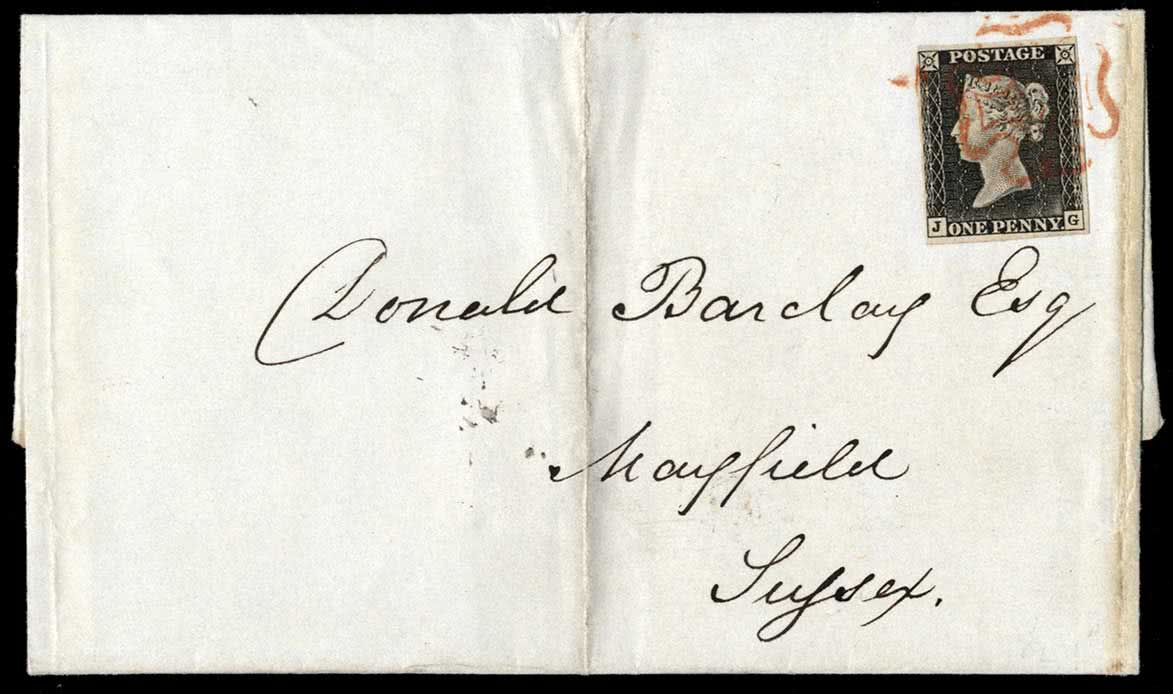 POSTAGE
J ONE PENNY. G
Donald Barclay Esq
Mayfield
Sussex.